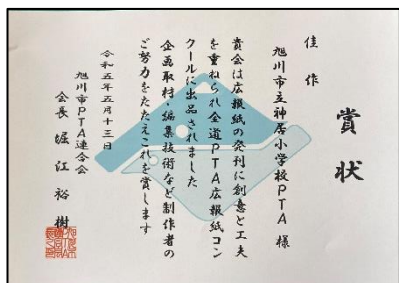 賞状
佳作
旭川市立神居小学校PTA 様
貴会は広報紙の発刊に創意と工夫
を重ねられ全道PTA広報紙コン
クールに出品されました
企画取材、編集技術など制作者の
ご努力をたたえこれを賞します
令和五年五月十三日
旭川市PTA連合会
会長 堀江裕樹